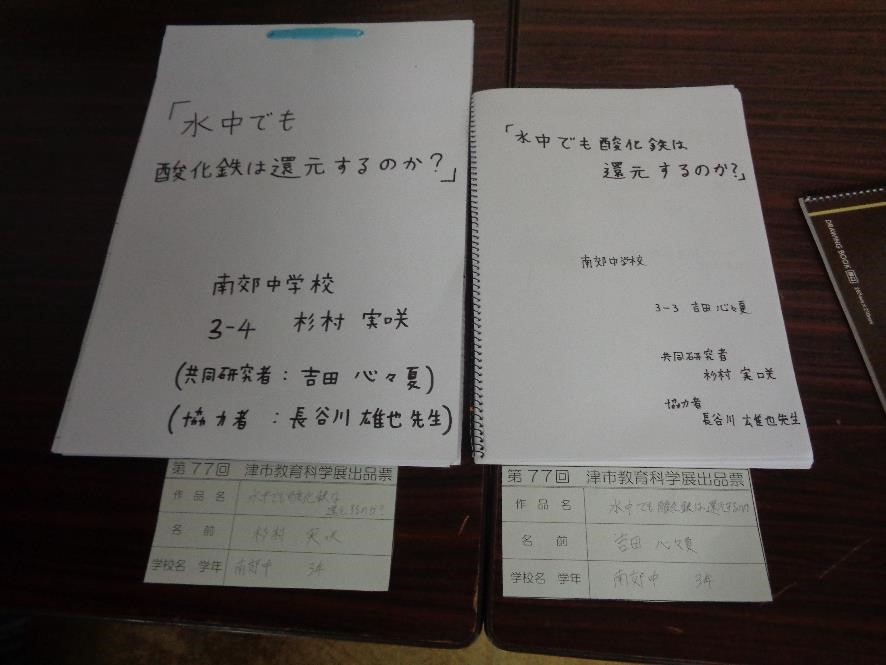 「水中でも
酸化鉄は還元するのか？」
南郊中学校
3-4 杉村 実咲
(共同研究者：吉田 心々夏)
(協力者 ：長谷川 雄也先生)
第77回 津市教育科学展出品票
作品名 水中でも酸化鉄は
還元するのか？
名前 杉村 実咲
学校名 学年 南郊中 3年
「水中でも酸化鉄は
還元するのか?」
南郊中学校
3-3 吉田 心々夏
共同研究者
杉村 実咲
協力者
長谷川 雄也先生
第77回 津市教育科学展出品票
作品名 水中でも酸化鉄は還元するのか
名前 吉田 心々夏
学校名 学年 南郊中 3年
DRAWING BOOK